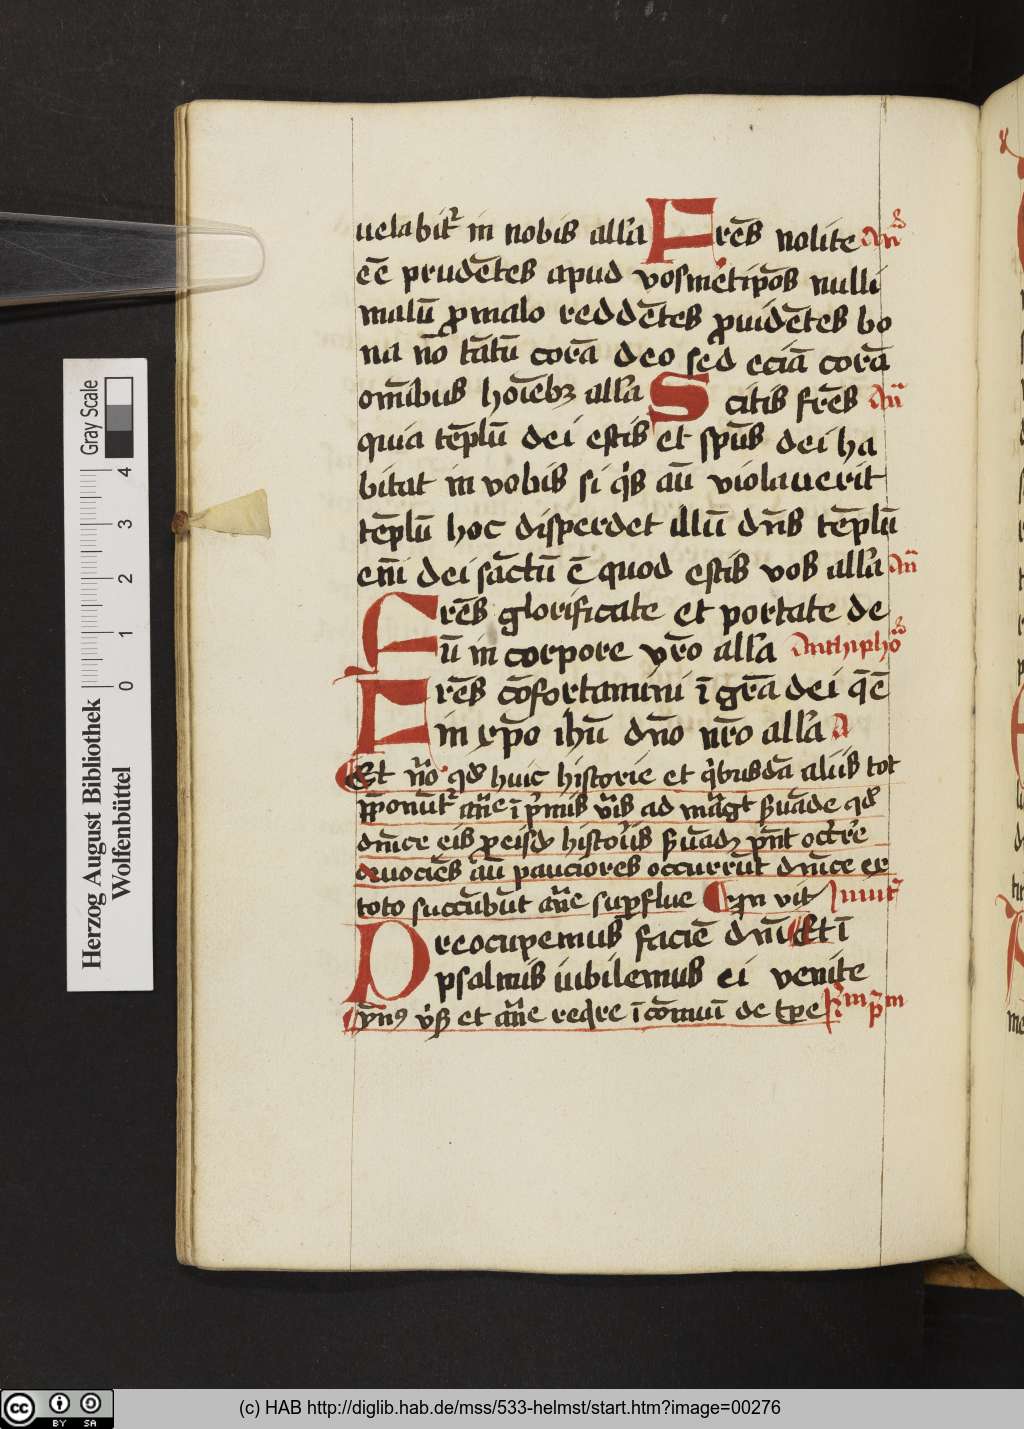 uelabit᷑ in nobis all'a Fres̄ nolite an̄
ee̅ prude̅tes apud vosmetip̄os nulli
malu̅ ꝓ malo redde̅tes ꝓuide̅tes bo
na no̅ ta̅tu̅ cora̅ deo sed ecia̅ cora̅
om̅ibus ho̅i̅ebꝫ all'a Scitis fre̅s an̄
quia te̅plu̅ dei estis et sp̅us dei ha
bitat in vobis si q̇s au̅ violauerit
te̅plu̅ hoc disperdet illu̅ dn̅s te̅plu̅
em̅ dei sa̅ctu̅ e̅ quod estis vos all'a an̄
Fre̅s glorificate et portate de
u̅ in corpore vr̅o all'a Anthipho
Fre̅s co̅fortamini i̅ gr̅a dei q̅ e̅
in xp̅o ihu̅ dn̅o nr̅o all'a A
Et no̅ qd huic historie et q̇busda̅ aliis tot
an̅e i̅ ṗmis ad
dn̅ice eis ꝓ eisd histȯiis
au̅ pauciores occurru̅t dn̅ice ex
toto succu̅bu̅t an̅e sup̲flue Inuit̅
Preocupemus facie̅ dn̅i Et i̅
psalmis iubilemus ei venite
ympn9 et an̅e req̇re i̅ co̅muni de tp̅e
Herzog August Bibliothek
Wolfenbüttel
Gray Scale
0 1 2 3 4
cc BY SA
(c) HAB http://diglib.hab.de/mss/533-helmst/start.htm?image=00276